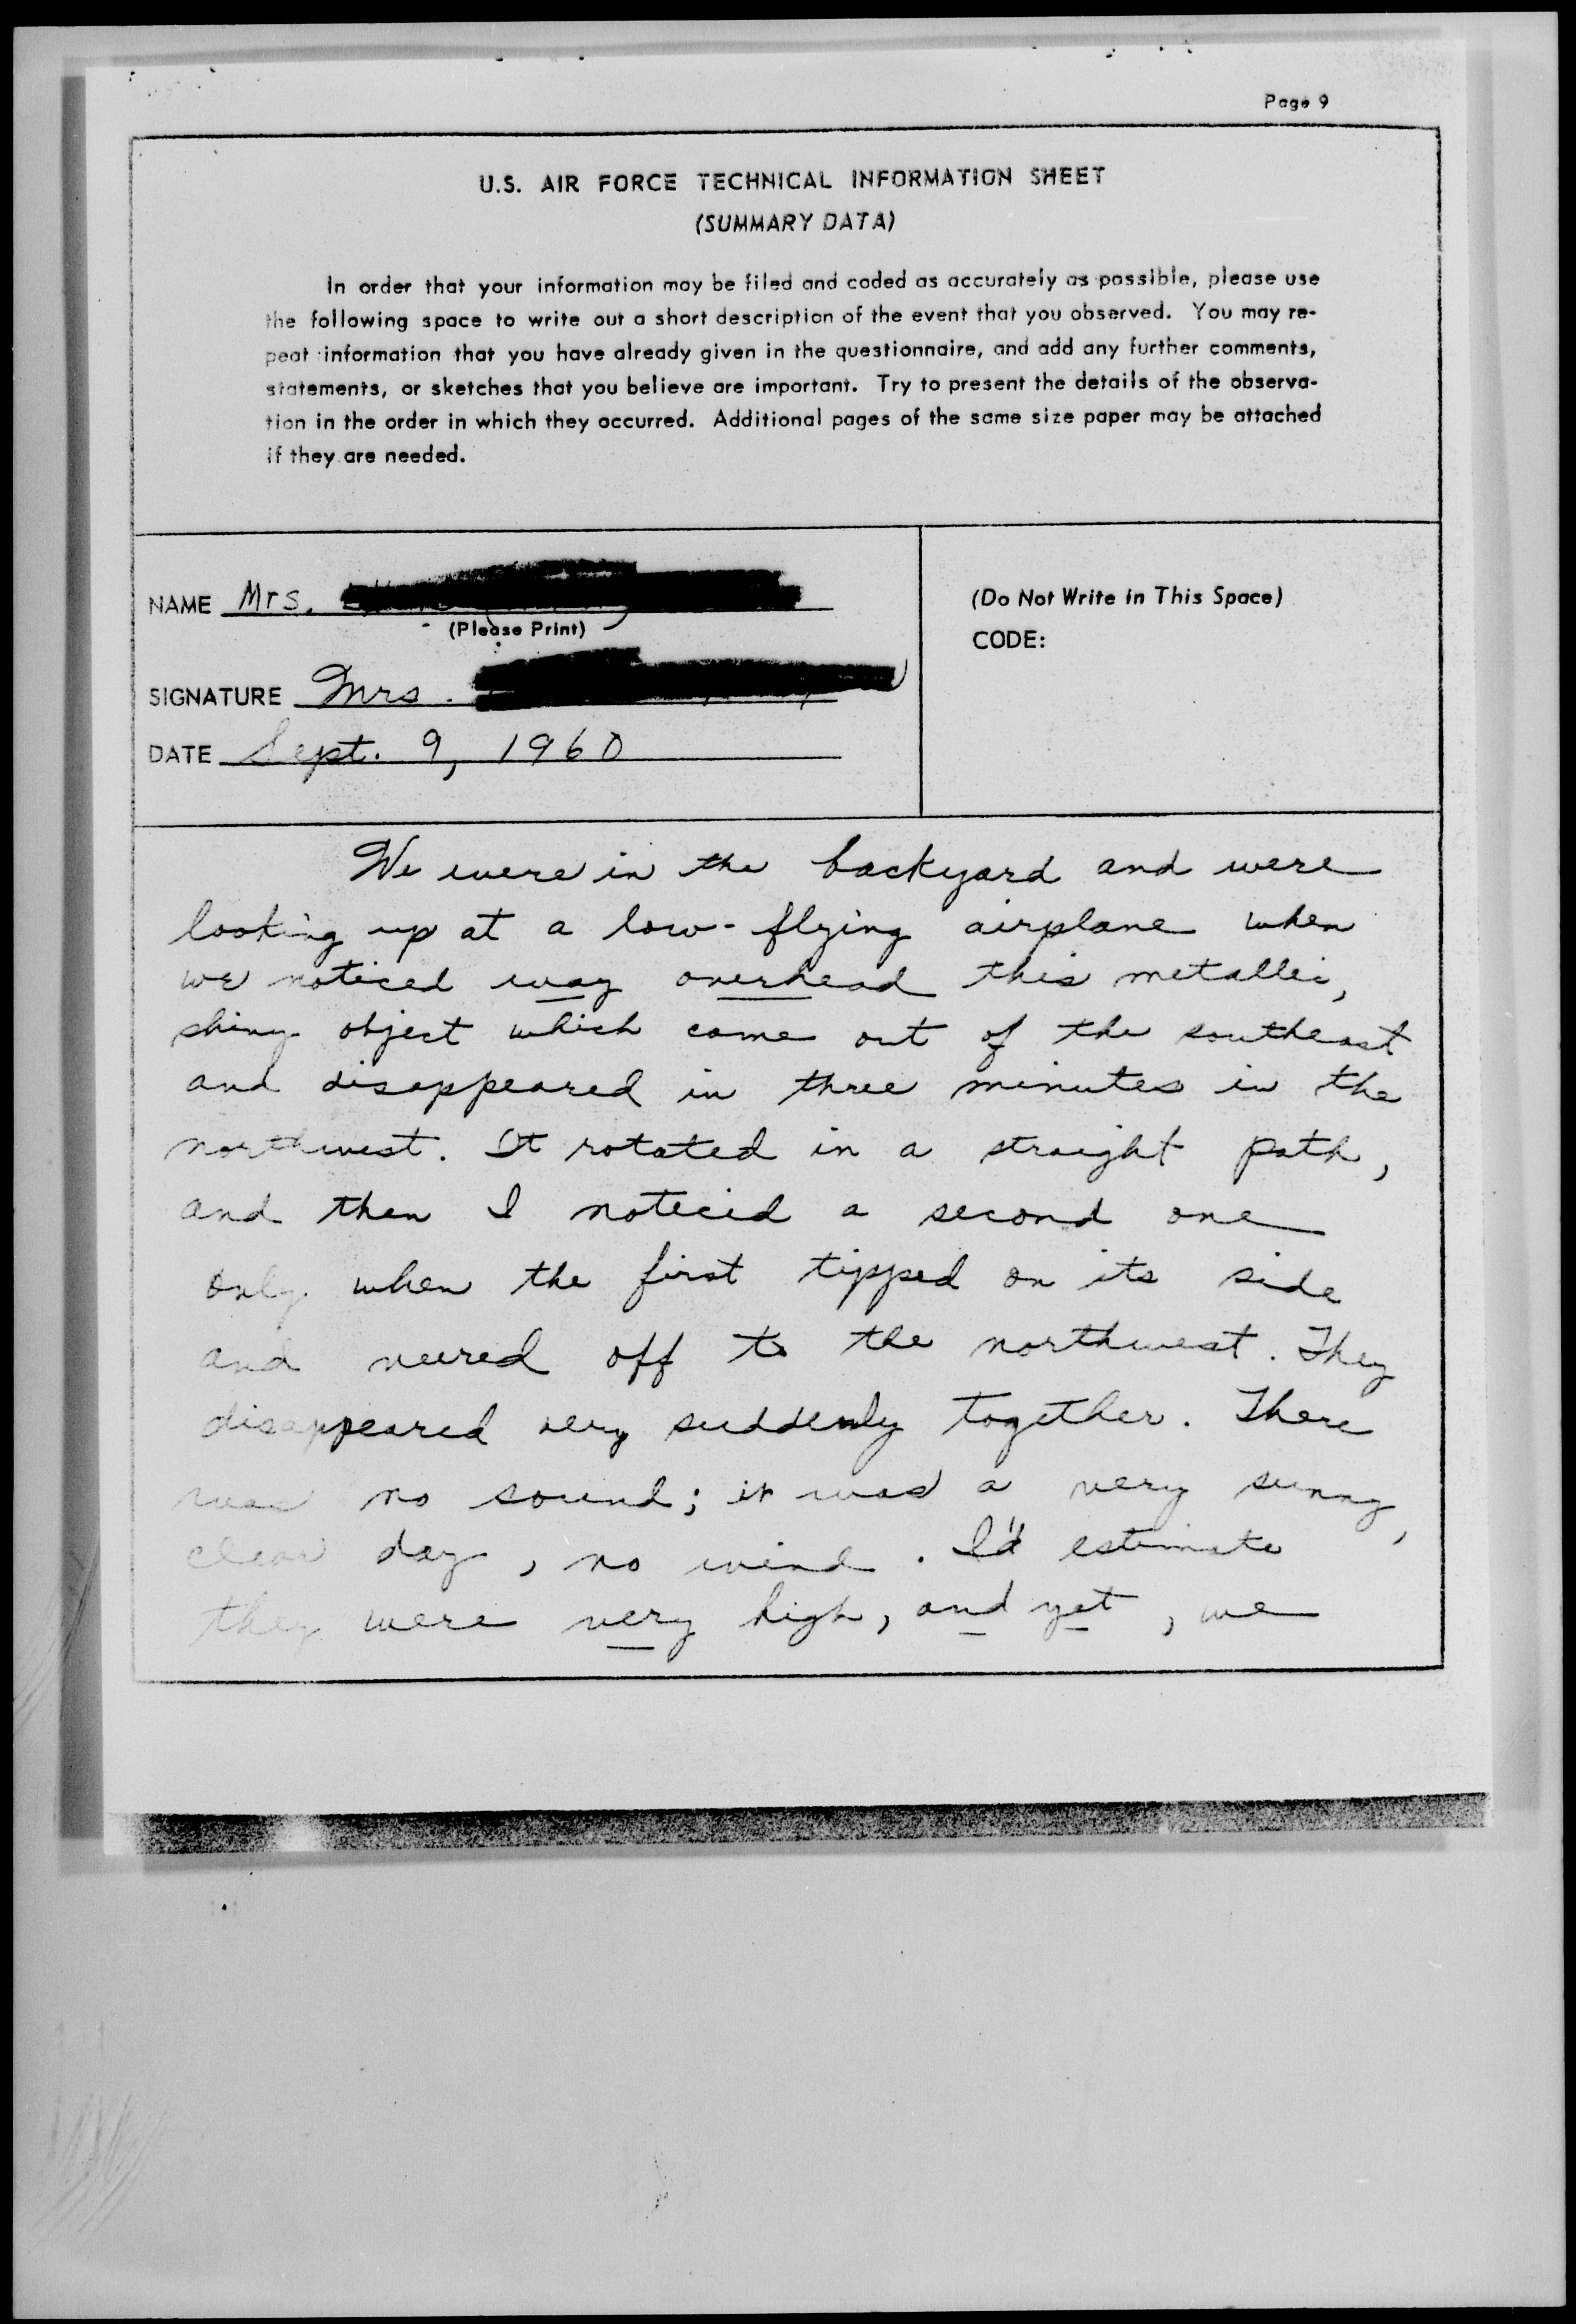 Page 9
U.S. AIR FORCE TECHNICAL INFORMATION SHEET
(SUMMARY DATA)
In order that your information may be filed and coded as accurately as possible, please use
the following space to write out a short description of the event that you observed. You may re-
peat information that you have already given in the questionnaire, and add any further comments,
statements, or sketches that you believe are important. Try to present the details of the observa-
tion in the order in which they occurred. Additional pages of the same size paper may be attached
if they are needed.
NAME Mrs.
(Please Print)
SIGNATURE Mrs.
DATE Sept. 9, 1960
(Do Not Write in This Space)
CODE:
We were in the backyard and were
looking up at a low-flying airplane when
we noticed way overhead this metallic,
shiny object which came out of the southeast
and disappeared in three minutes in the
northwest. It rotated in a straight path,
and then I noticed a second one
only when the first tipped on its side
and veered off to the northwest. They
disappeared very suddenly together. There
was no sound; it was a very sunny,
clear day, no wind. I'd estimate
they were very high, and yet, we